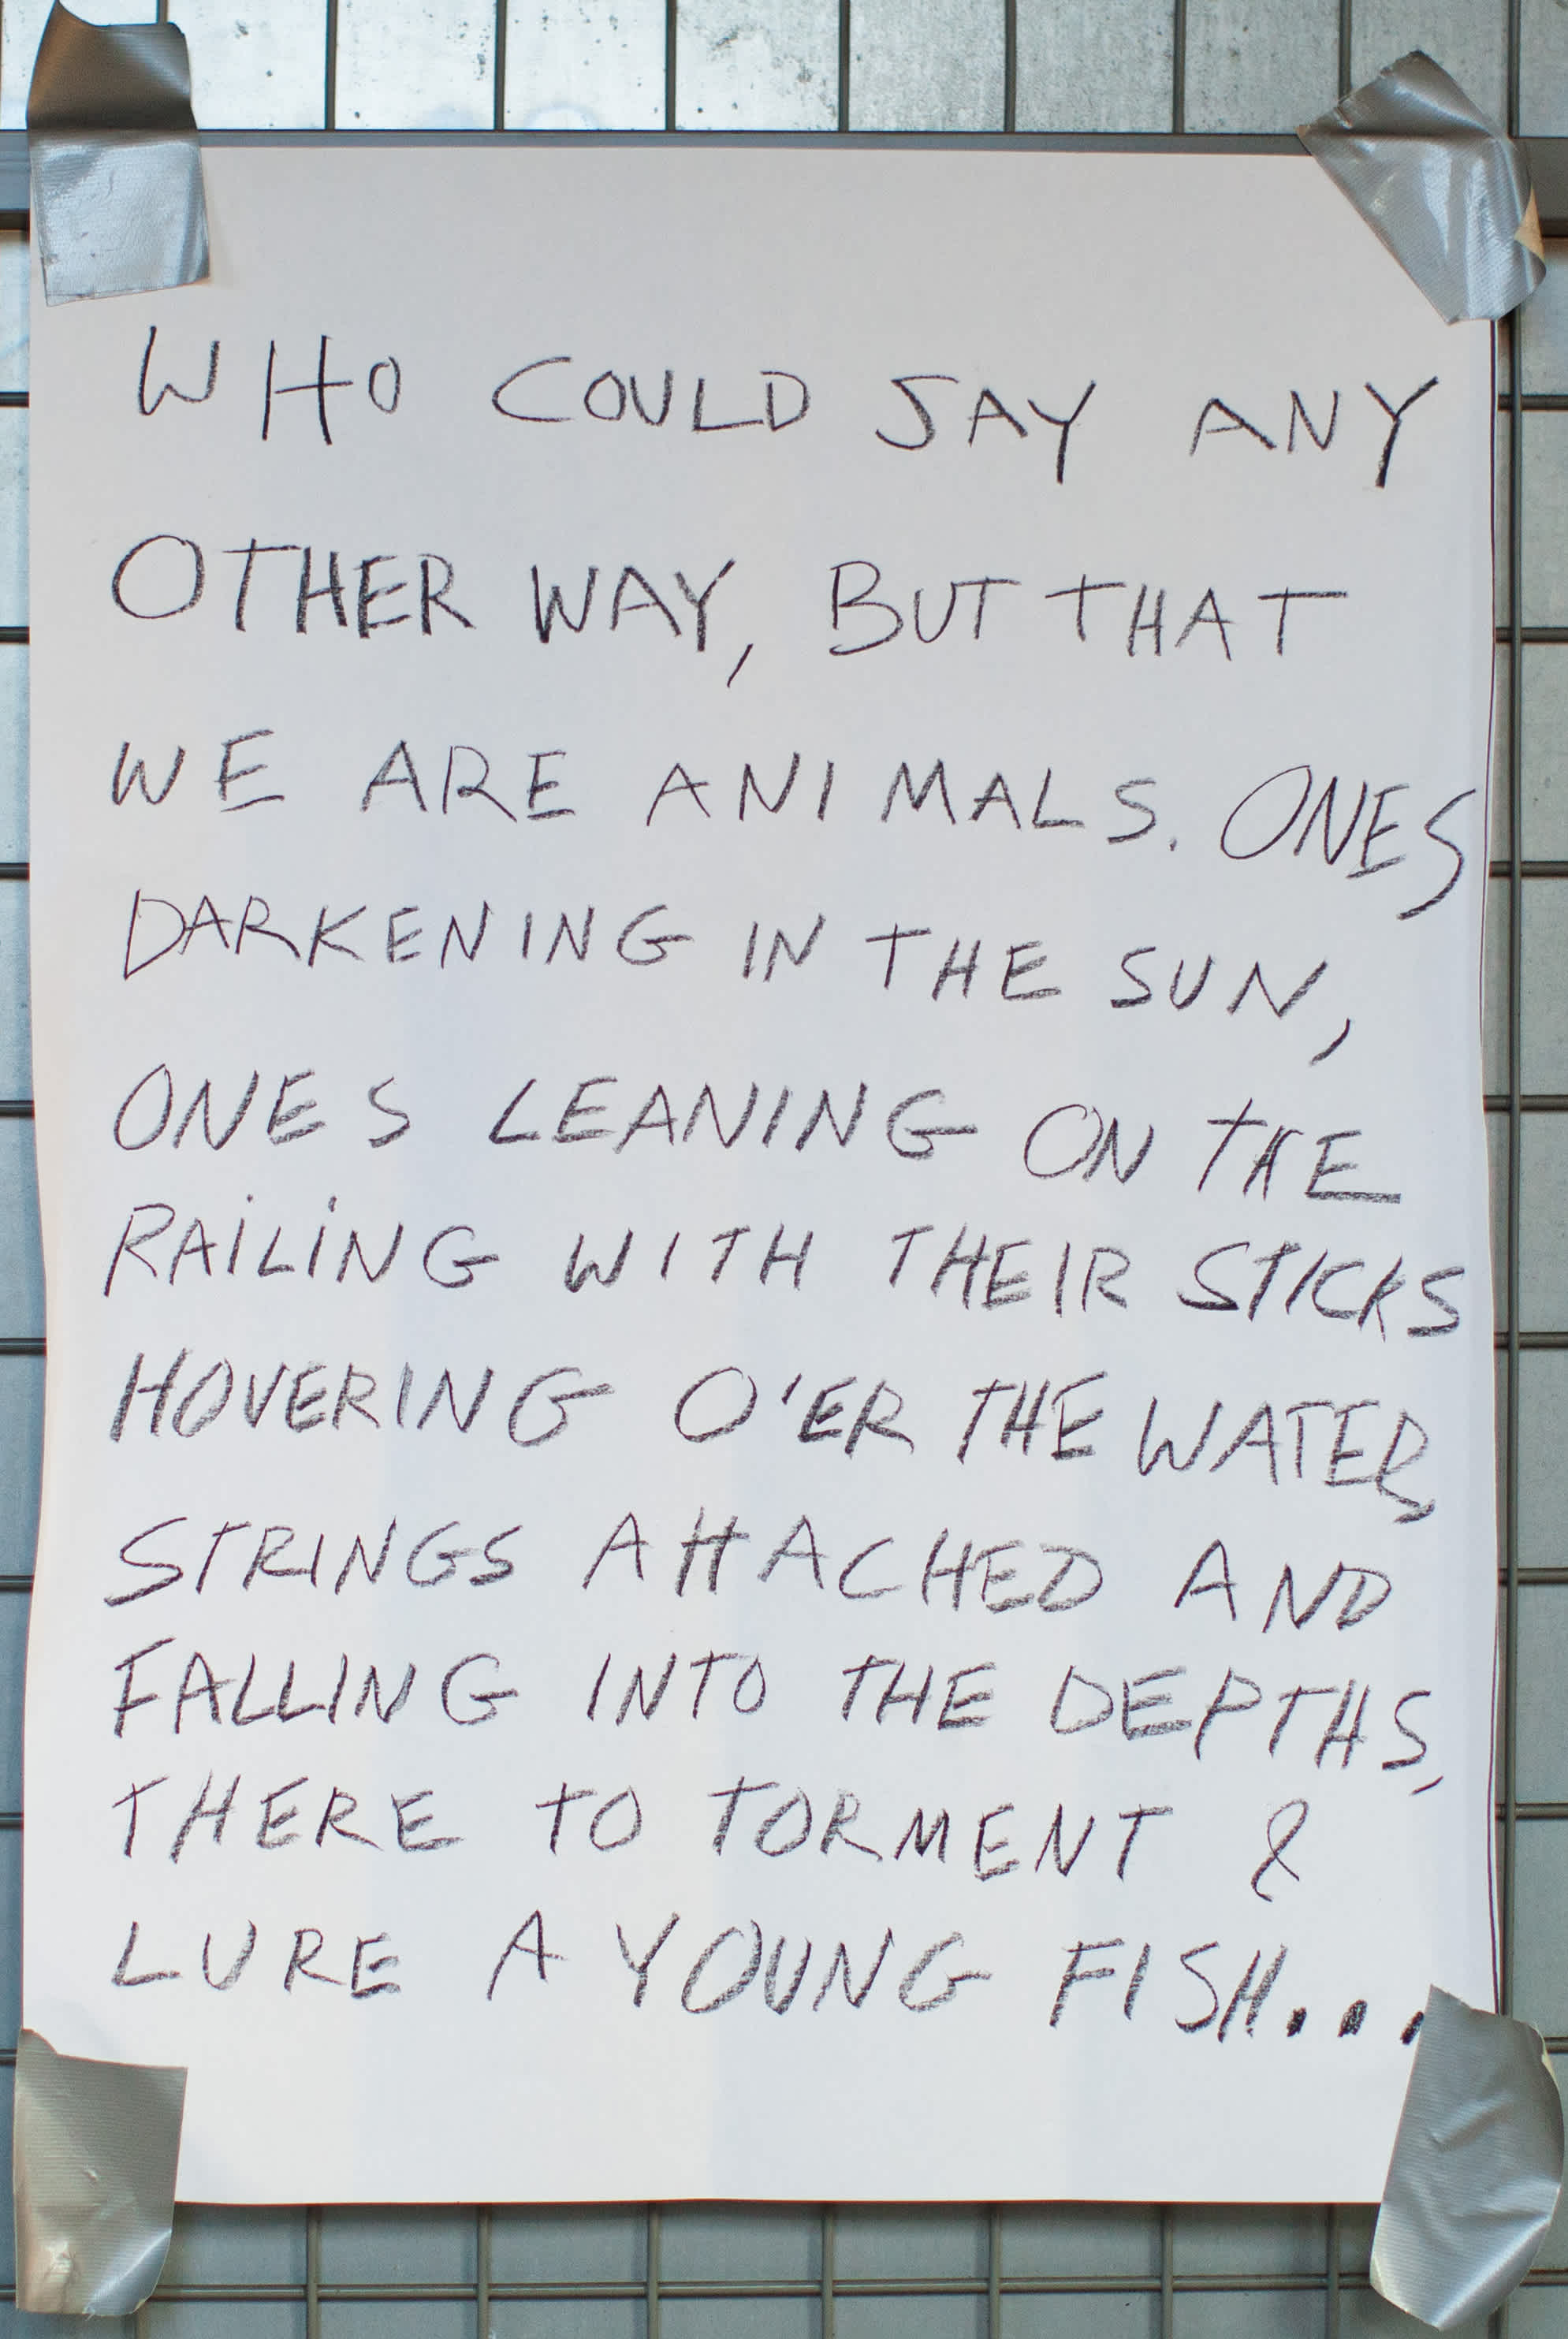 WHO COULD SAY ANY
OTHER WAY, BUT THAT
WE ARE ANIMALS. ONES
DARKENING IN THE SUN,
ONES LEANING ON THE
RAILING WITH THEIR STICKS
HOVERING O'ER THE WATER,
STRINGS ATTACHED AND
FALLING INTO THE DEPTHS,
THERE TO TORMENT &
LURE A YOUNG FISH...